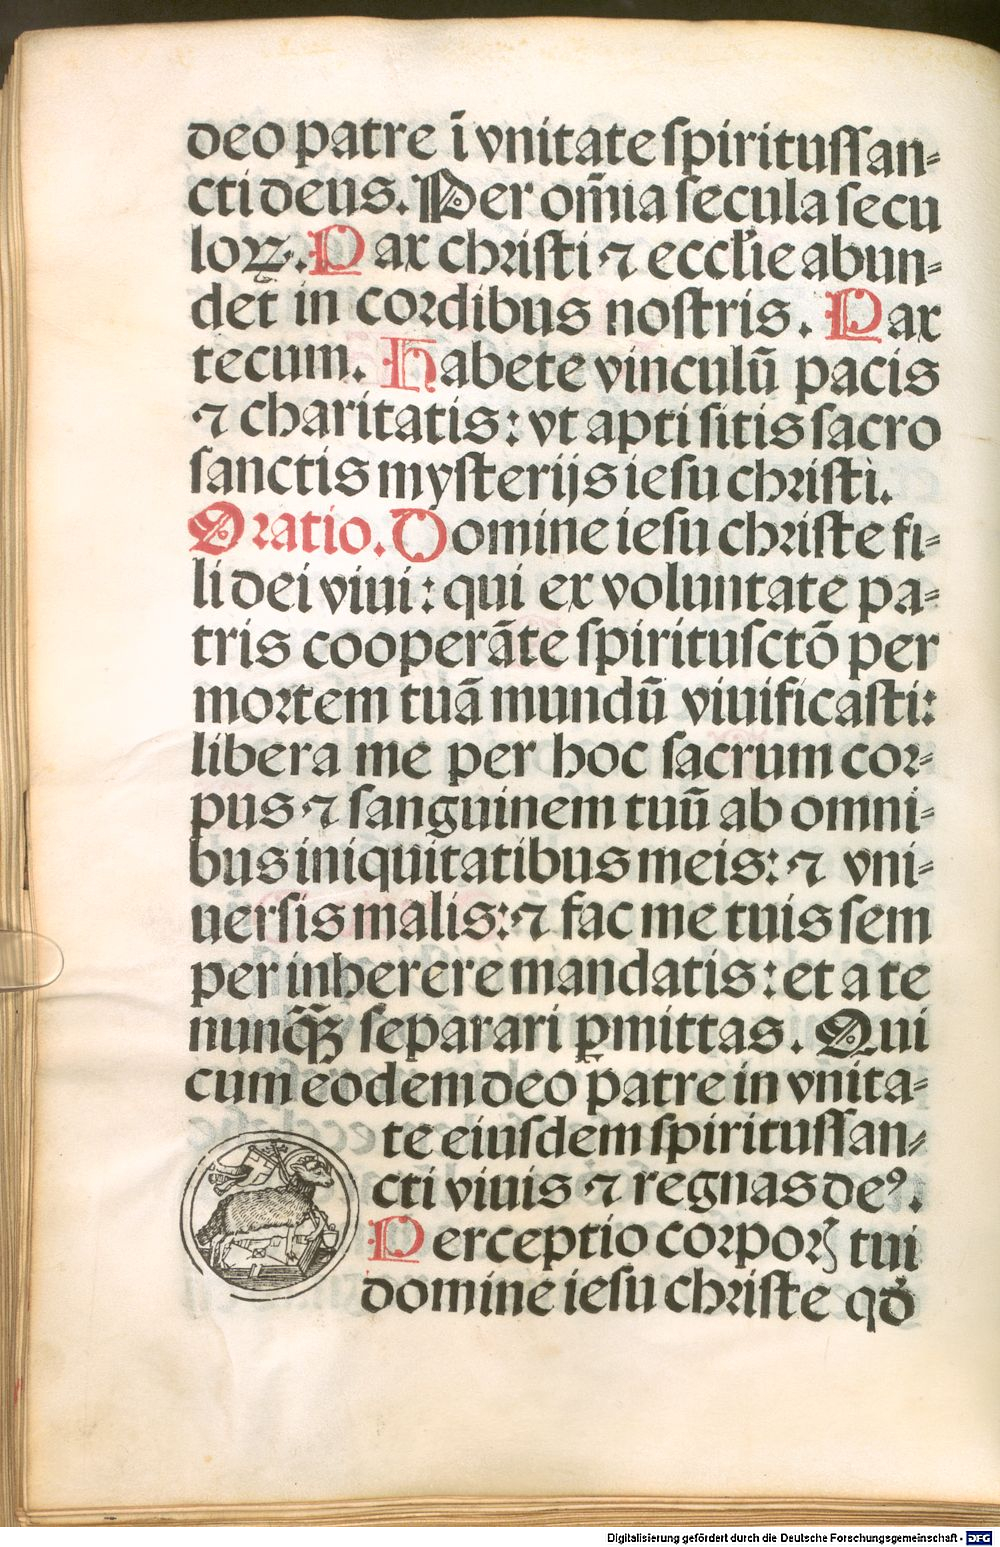 deo patre ī vnitate ſpirituſſan⸗
cti deus. Per om̄ia ſecula ſecu
loꝝ. Pax chriſti ⁊ eccłie abun⸗
det in coꝛdibus noſtris. Pax
tecum. Habete vinculū pacis
⁊ charitatis: vt apti ſitis ſacro
ſanctis myſterijs ieſu chriſti.
Oꝛatio. Domine ieſu chꝛiſte fi⸗
li dei viui: qui ex voluntate pa⸗
tris cooperāte ſpirituſctō per
moꝛtem tuā mundū viuificaſti:
libera me per hoc ſacrum coꝛ⸗
pus ⁊ ſanguinem tuū ab omni⸗
bus iniquitatibus meis: ⁊ vni⸗
uerſis malis: ⁊ fac me tuis ſem
per inherere mandatis: et a te
nunq̄ꝫ ſeparari ꝑmittas. Qui
cum eodem deo patre in vnita⸗
te eiuſdem ſpirituſſan⸗
cti viuis ⁊ regnas deꝰ.
Perceptio coꝛpoꝝ tui
domine ieſu chꝛiſte qđ
Digitalisierung gefördert durch die Deutsche Forschungsgemeinschaft - DFG